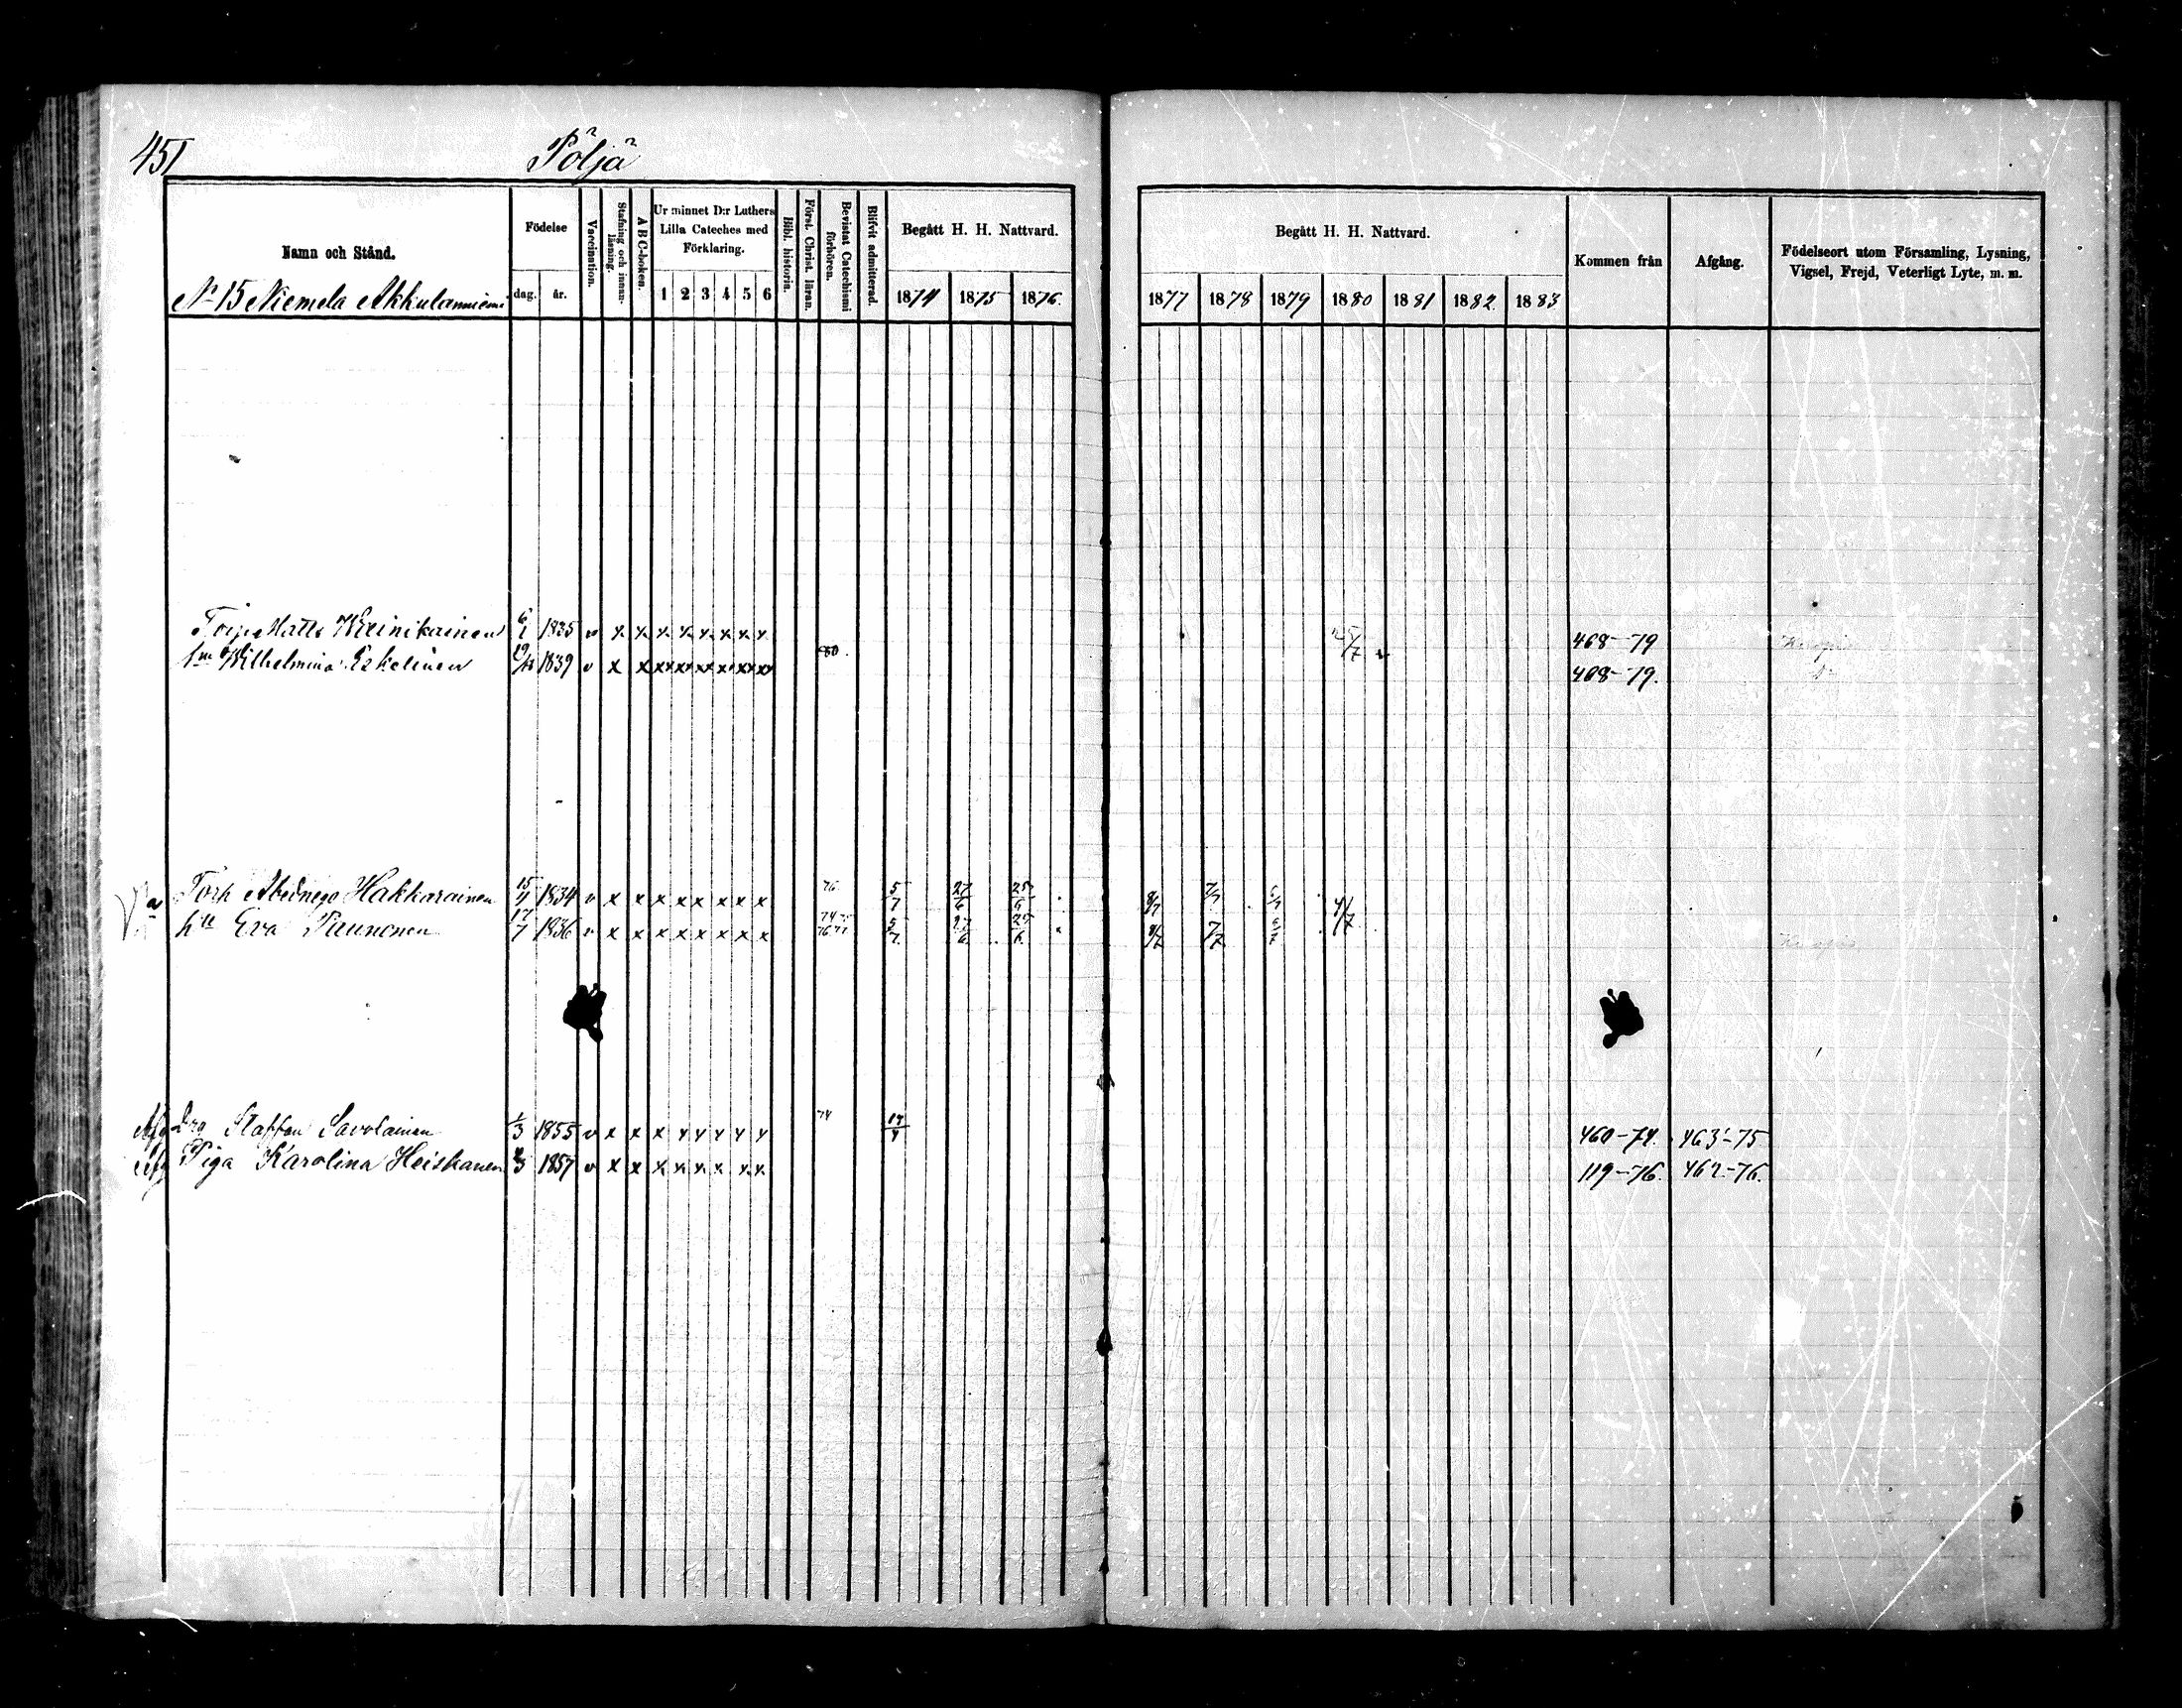 451
Pöljä
Namn och Stånd.
Födelse
dag. år.
Vaccination.
Stafning och innan-läsning.
A B C-boken.
Ur minnet D:r Luthers Lilla Cateches med Förklaring.
1 2 3 4 5 6
Bibl. historia.
Först. Christ. läran.
Bevistat Catechismi förhören.
Blifvit admitterad.
Begått H. H. Nattvard.
1874 1875 1876.
Begått H. H. Nattvard.
1877 1878 1879 1880 1881 1882. 1883
Kommen från
Afgång.
Födelseort utom Församling, Lysning, Vigsel, Frejd, Veterligt Lyte, m. m.
No 15 Niemela Akkulanniemi
Matts Heinikainen 6/1 1835 v x x x x x x x x 468-79 Kuopio
Wilhelmina Eskelinen 1839 v x x xx xx xx x xx xx 80. 468-79.
Torp Abednego Hakkarainen 15/11 1834 v x x x x x x x x 76 5/7 27/6 25/6 8/7 7/7 6/7 4/7
hu Eva Tuunonen 17/7 1836 v x x x x x x x x 74 75 76 77 5/7. 27/6. 25/6. 8/7 7/7 6/7 Kuopio
Afg Drg Staffan Savolainen 1/3 1855 v x x x x x x x x 74 460-74. 463-75
Afg Piga Karolina Heiskanen 1857 v x x x x x x x x 119-76. 462-76.